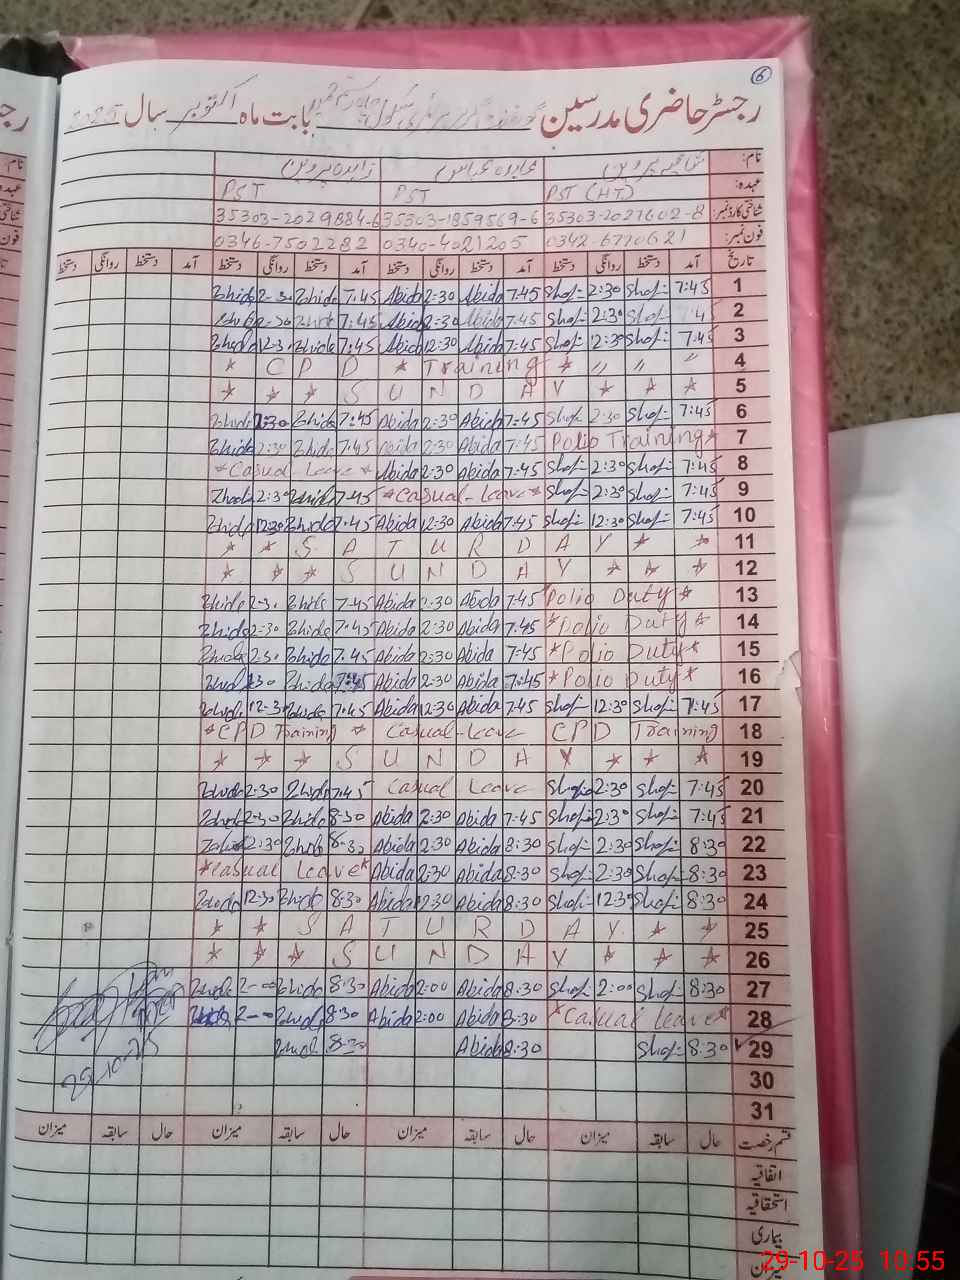 6
رجسٹر حاضری مدرسین گورنمنٹ گرلز پرائمری سکول بابت ماہ اکتوبر سال 2025
نام: شافیہ پروین عابدہ عباس زاہدہ پروین
عہدہ: PST (HT) PST PST
شناختی کارڈ نمبر: 35303-2021602-8 35303-1859569-6 35303-2029884-6
فون نمبر: 0342-6720621 0340-4021205 0346-7502282
تاریخ آمد دستخط روانگی دستخط آمد دستخط روانگی دستخط آمد دستخط روانگی دستخط آمد دستخط روانگی دستخط
1 7:45 Shaf 2:30 Shaf 7:45 Abida 2:30 Abida 7:45 Zhida 2:30 Zhida
2 7:45 Shaf 2:30 Shaf 7:45 Abida 2:30 Abida 7:45 Zhida 2:30 Zhida
3 7:45 Shaf 12:30 Shaf 7:45 Abida 12:30 Abida 7:45 Zhida 12:30 Zhida
4 * CPD * Training * " " "
5 * * * SUNDAY * * *
6 7:45 Shaf 2:30 Shaf 7:45 Abida 2:30 Abida 7:45 Zhida 2:30 Zhida
7 Polio Training* 7:45 Abida 2:30 Abida 7:45 Zhida 2:30 Zhida
8 7:45 Shaf 2:30 Shaf 7:45 Abida 2:30 Abida *Casual Leave*
9 7:45 Shaf 2:30 Shaf *Casual-Leave* 7:45 Zhida 2:30 Zhida
10 7:45 Shaf 12:30 Shaf 7:45 Abida 12:30 Abida 7:45 Zhida 12:30 Zhida
11 * * SATURDAY * *
12 * * * SUNDAY * * *
13 Polio Duty* 7:45 Abida 2:30 Abida 7:45 Zhida 2:30 Zhida
14 *Polio Duty* 7:45 Abida 2:30 Abida 7:45 Zhida 2:30 Zhida
15 *Polio Duty* 7:45 Abida 2:30 Abida 7:45 Zhida 2:30 Zhida
16 *Polio Duty* 7:45 Abida 2:30 Abida 7:45 Zhida 2:30 Zhida
17 7:45 Shaf 12:30 Shaf 7:45 Abida 12:30 Abida 7:45 Zhida 12:30 Zhida
18 CPD Training Casual-Leave *CPD Training *
19 * * * SUNDAY * * *
20 7:45 Shaf 2:30 Shaf Casual Leave 7:45 Zhida 2:30 Zhida
21 7:45 Shaf 2:30 Shaf 7:45 Abida 2:30 Abida 8:30 Zhida 2:30 Zhida
22 8:30 Shaf 2:30 Shaf 8:30 Abida 2:30 Abida 8:30 Zhida 2:30 Zhida
23 8:30 Shaf 2:30 Shaf 8:30 Abida 2:30 Abida *Casual Leave*
24 8:30 Shaf 12:30 Shaf 8:30 Abida 12:30 Abida 8:30 Zhida 12:30 Zhida
25 * * SATURDAY * *
26 * * * SUNDAY * * *
27 8:30 Shaf 2:00 Shaf 8:30 Abida 2:00 Abida 8:30 Zhida 2:00 Zhida
28 *Casual Leave* 8:30 Abida 2:00 Abida 8:30 Zhida 2:00 Zhida
29 8:30 Shaf 8:30 Abida 8:30 Zhida
29-10-25
30
31
قسم رخصت حال سابقہ میزان حال سابقہ میزان حال سابقہ میزان حال سابقہ میزان
اتفاقیہ
استحقاقیہ
بیماری
میزان
29-10-25 10:55